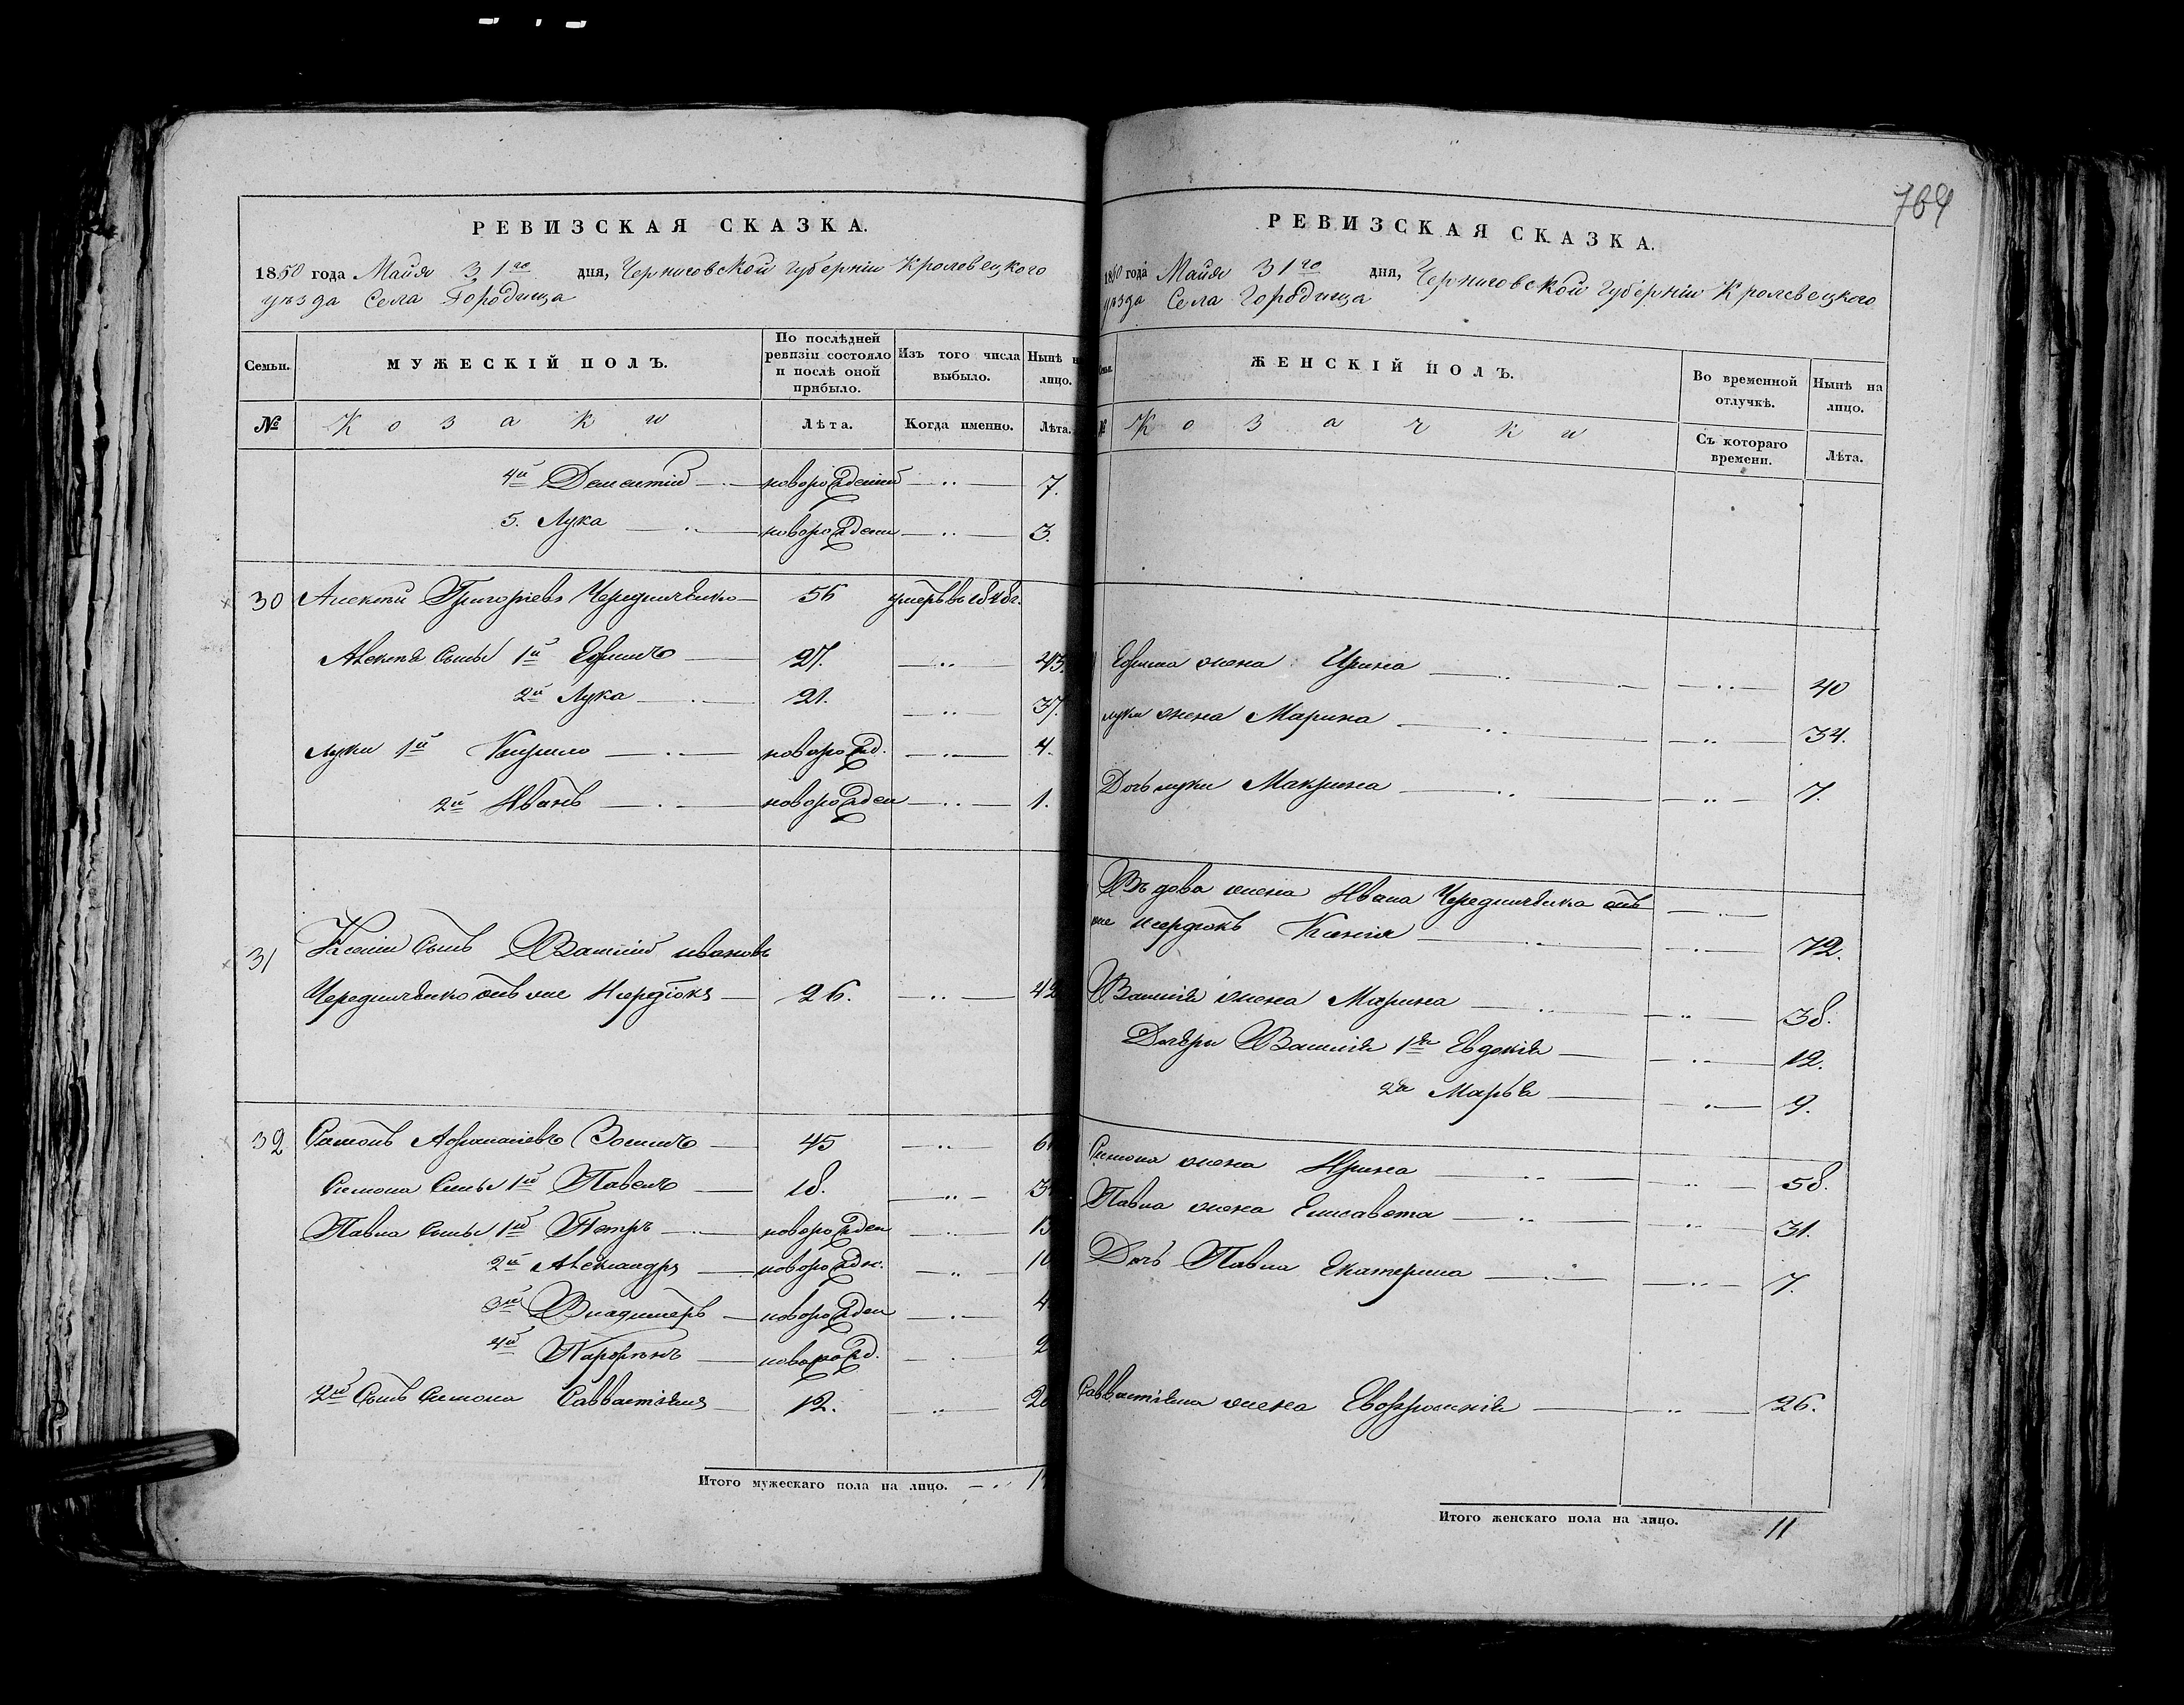 769
РЕВИЗСКАЯ СКАЗКА.
1850 года Майя 31го дня, Черниговской губернiи Кролевецкого
уезда Села Городища
Семьи. МУЖЕСКІЙ ПОЛЪ. По послѣдней ревизіи состояло и послѣ оной прибыло. Изъ того числа выбыло. Нынѣ на лицо.
№ Козаки Лѣта. Когда именно. Лѣта.
4й Дементiй новорожденный 7.
5. Лука новорожден 3.
30 Алексѣй Григорiевъ Чередниченко 56 умеръ въ 1848г.
Алексѣя Сыны 1й Ефимъ 27. 43.
2й Лука 21. 37.
Луки 1й Кирило новорожд. 4.
2й Иванъ новорожден 1.
31 Ксенiи Сынъ Василiй Ивановъ
Чередниченко онъ же 26. 42
32 Симонъ Афанасiевъ 45 6
Симона Сыны 1й Павелъ 18. 3
Павла Сыны 1й Петръ новорожден 13
2й Александръ новорожден. 10
3й Владимеръ новорожден 4
4й новорожд. 2
2й Сынъ Симона Савастiянъ 12. 28
Итого мужескаго пола на лицо. 1
РЕВИЗСКАЯ СКАЗКА.
1850 года Майя 31го дня, Черниговской губернiи Кролевецкого
уезда Села Городища
Семьи. ЖЕНСКІЙ ПОЛЪ. Во временной отлучкѣ. Нынѣ на лицо.
№ Козачки Съ котораго времени. Лѣта.
Ефима жена Ирина 40
Луки жена Марина 34.
Дочь Луки Макрина 7.
Вдова жена Ивана Чередниченка онъ
же Ксенiя 72.
Василiя жена Марина 38.
Дочери Василiя 1я Евдокiя 12.
2я Марья 9.
Симона жена Ирина 58.
Павла жена Елисавета 31.
Дочь Павла Екатерина 7.
Савастiяна жена Евфросинiя 26.
Итого женскаго пола на лицо. 11